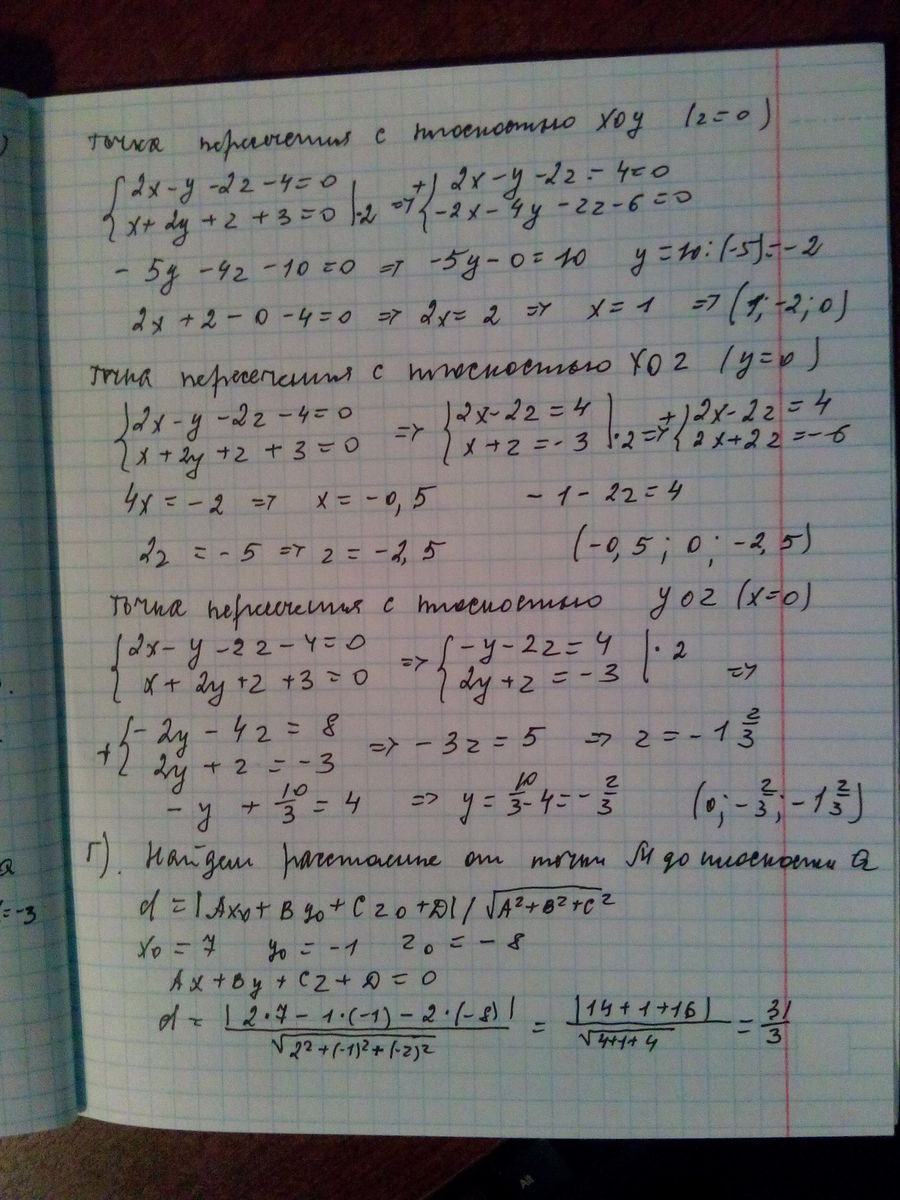 точка пересечения с плоскостью XOY (z=0)
{2x-y-2z-4=0 / x+2y+z+3=0 |·2 => +{2x-y-2z-4=0 / -2x-4y-2z-6=0
-5y-4z-10=0 => -5y-0=10 y=10:(-5)=-2
2x+2-0-4=0 => 2x=2 => x=1 => (1;-2;0)
точка пересечения с плоскостью XOZ (y=0)
{2x-y-2z-4=0 / x+2y+z+3=0 => {2x-2z=4 / x+z=-3 |·2 => +{2x-2z=4 / 2x+2z=-6
4x=-2 => x=-0,5 -1-2z=4
2z=-5 => z=-2,5 (-0,5; 0; -2,5)
точка пересечения с плоскостью YOZ (x=0)
{2x-y-2z-4=0 / x+2y+z+3=0 => {-y-2z=4 / 2y+z=-3 |·2 =>
+{-2y-4z=8 / 2y+z=-3 => -3z=5 => z=-1 2/3
-y+10/3=4 => y=10/3-4=-2/3 (0;-2/3;-1 2/3)
г). Найдем расстояние от точки M до плоскости Q
d=|Ax0+By0+Cz0+D|/√A²+B²+C²
x0=7 y0=-1 z0=-8
Ax+By+Cz+D=0
d= |2·7-1·(-1)-2·(-8)| / √2²+(-1)²+(-2)² = |14+1+16| / √4+1+4 = 31/3
=-3
All